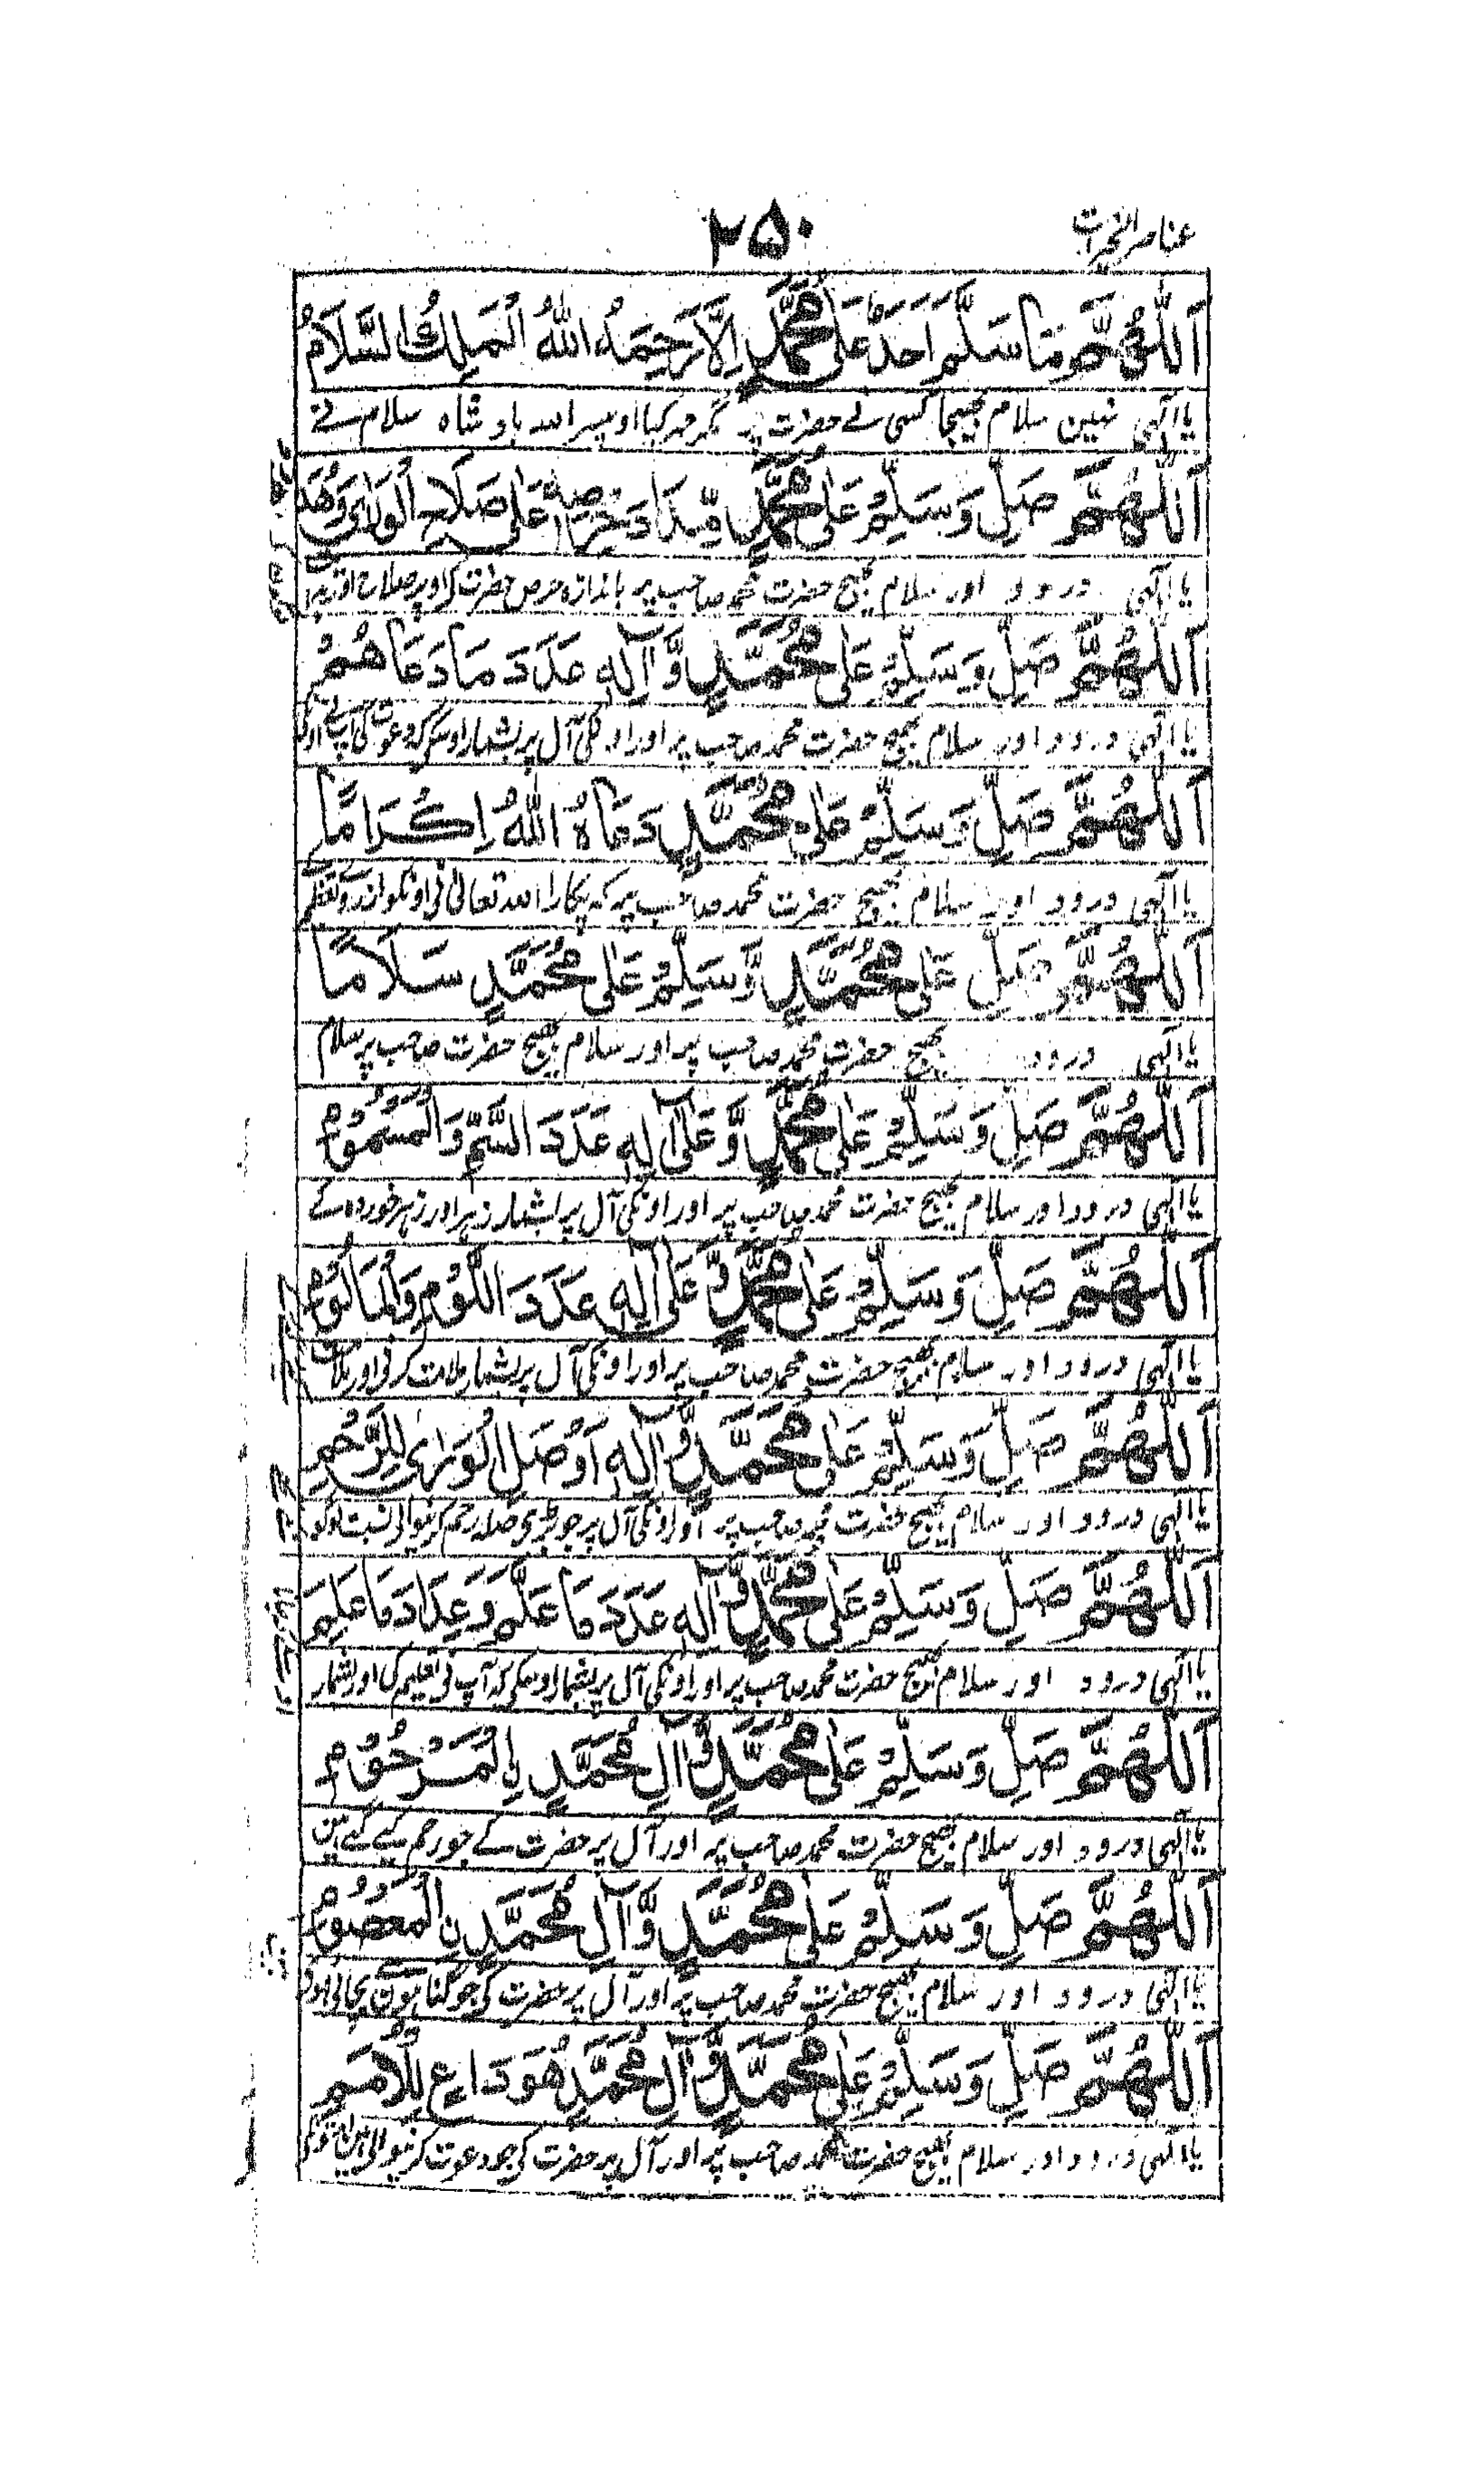 عناصر الخیرات
۲۵۰
اَللّٰهُمَّ مَا سَلَّمَ اَحَدٌ عَلٰى مُحَمَّدٍ اِلَّا رَحِمَهُ اللّٰهُ الْمَلِكُ السَّلَامُ
یا الٰہی نہین سلام بھیجا کسی نے حضرت پر مگر رحم کیا اوسپر اللہ بادشاہ سلام نے
اَللّٰهُمَّ صَلِّ وَسَلِّمْ عَلٰى مُحَمَّدٍ مِّدَادَ حِرْصِهٖ عَلٰى صَلَاحِ الْوَرٰى وَهُدَ
یا الٰہی درود اور سلام بھیج حضرت محمد صاحب پر باندازہ حرص حضرت کی اوپر صلاح اور
اَللّٰهُمَّ صَلِّ وَسَلِّمْ عَلٰى مُحَمَّدٍ وَّاٰلِهٖ عَدَدَ مَا دَعَاهُمْ
یا الٰہی درود اور سلام بھیج حضرت محمد صاحب پر اور اونکی آل پر بشمار اوسکے کہ دعوت کی آپ نے اونکی
اَللّٰهُمَّ صَلِّ وَسَلِّمْ عَلٰى مُحَمَّدٍ دَعَاهُ اللّٰهُ اِكْرَامًا
یا الٰہی درود اور سلام بھیج حضرت محمد صاحب پر کہ پکارا اللہ تعالیٰ نی اونکو از روے تعظیم
اَللّٰهُمَّ صَلِّ عَلٰى مُحَمَّدٍ وَّسَلِّمْ عَلٰى مُحَمَّدٍ سَلَامًا
یا الٰہی درود بھیج حضرت محمد صاحب پر اور سلام بھیج حضرت صاحب پر سلام
اَللّٰهُمَّ صَلِّ وَسَلِّمْ عَلٰى مُحَمَّدٍ وَّعَلٰى اٰلِهٖ عَدَدَ السَّمِّ وَالْمَسْمُوْمِ
یا الٰہی درود اور سلام بھیج حضرت محمد صاحب پر اور اونکی آل پر بشمار زہر اور زہر خوردہ کے
اَللّٰهُمَّ صَلِّ وَسَلِّمْ عَلٰى مُحَمَّدٍ وَّعَلٰى اٰلِهٖ عَدَدَ اللَّوْمِ وَالْمَلُوْمِ
یا الٰہی درود اور سلام بھیج حضرت محمد صاحب پر اور اونکی آل پر بشمار ملامت کرنی اور ملامت
اَللّٰهُمَّ صَلِّ وَسَلِّمْ عَلٰى مُحَمَّدٍ وَّاٰلِهٖ اَوْصَلِ الْوَرٰى لِلرَّحِمِ
یا الٰہی درود اور سلام بھیج حضرت محمد صاحب پر اور اونکی آل پر جو بڑی صلہ رحم کرنیوالی
اَللّٰهُمَّ صَلِّ وَسَلِّمْ عَلٰى مُحَمَّدٍ وَّاٰلِهٖ عَدَدَ مَا عَلَّمَ وَعِدَادَ مَا عَلِمَ
یا الٰہی درود اور سلام بھیج حضرت محمد صاحب پر اور اونکی آل پر بشمار اوسکی کہ آپ نی تعلیم کی اور بشمار
اَللّٰهُمَّ صَلِّ وَسَلِّمْ عَلٰى مُحَمَّدٍ وَّاٰلِ مُحَمَّدٍ نِ الْمَرْحُوْمِ
یا الٰہی درود اور سلام بھیج حضرت محمد صاحب پر اور آل پر حضرت کے جو رحم کیے گیے ہین
اَللّٰهُمَّ صَلِّ وَسَلِّمْ عَلٰى مُحَمَّدٍ وَّاٰلِ مُحَمَّدٍ نِ الْمَعْصُوْمِ
یا الٰہی درود اور سلام بھیج حضرت محمد صاحب پر اور آل پر حضرت کی جو گناہون سے بچائی
اَللّٰهُمَّ صَلِّ وَسَلِّمْ عَلٰى مُحَمَّدٍ وَّاٰلِ مُحَمَّدٍ هُوَ دَاعٍ لِلْاُمَمِ
یا الٰہی درود اور سلام بھیج حضرت محمد صاحب پر اور آل پر حضرت کی جو دعوت کرنیوالی ہین